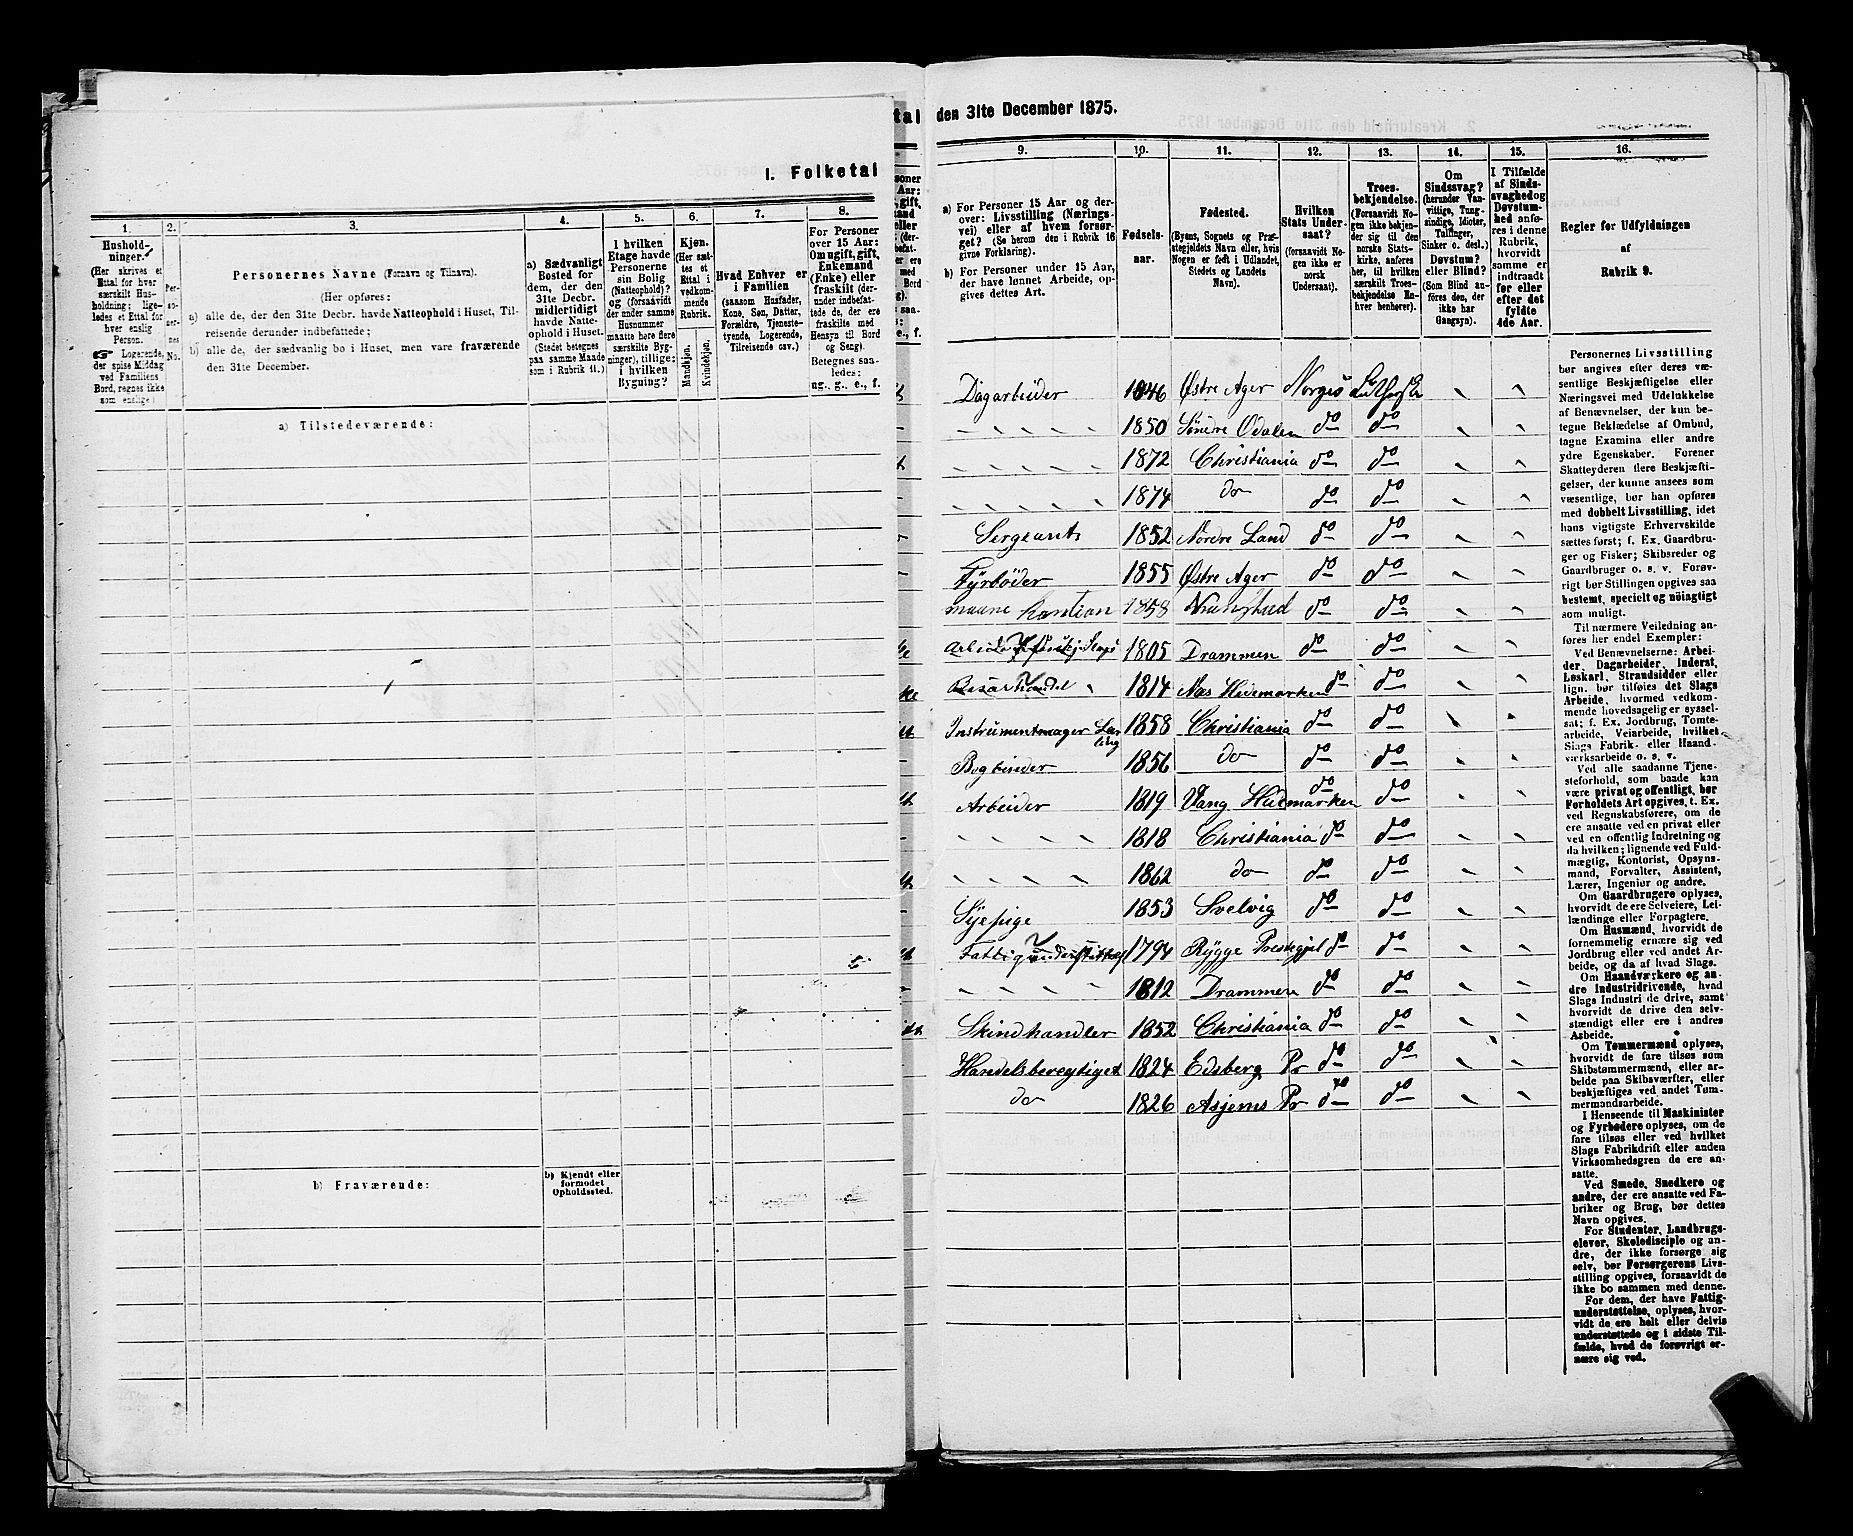 I. Folketal
1. 2. 3. 4. 5. 6. 7. 8.
Hushold-
ninger.
(Her skrives et
Ettal for hver
særskilt Hus-
holdning; lige-
ledes et Ettal for
hver enslig
Person.
☞ Logerende,
der spise Middag
ved Familiens
Bord, regnes ikke
som enslige.)
Per-
so-
ner-
nes
No.
Personernes Navne (Fornavn og Tilnavn).
(Her opføres:
a) alle de, der den 31te Decbr. havde Natteophold i Huset, Til-
reisende derunder indbefattede;
b) alle de, der sædvanlig bo i Huset, men vare fraværende
den 31te December.
a) Sædvanligt
Bosted for
dem, der den
31te Decbr.
midlertidigt
havde Natte-
ophold i Huset.
(Stedet betegnes
paa samme Maade
som i Rubrik 11.)
I hvilken
Etage havde
Personerne
sin Bolig
(Natteophold)?
og (forsaavidt
der under samme
Husnummer
maatte høre flere
særskilte Byg-
ninger), tillige:
i hvilken
Bygning?
Kjøn.
(Her sæt-
tes et
Ettal i
vedkom-
mende
Rubrik.
Mandkjøn.
Kvindekjøn.
Hvad Enhver er
i Familien
(saasom Husfader,
Kone, Søn, Datter,
Forældre, Tjeneste-
tyende, Logerende,
Tilreisende osv.)
For Personer
over 15 Aar:
Om ugift, gift,
Enkemand
(Enke) eller
fraskilt (der-
under indbefat-
tede de, der ere
fraskilte med
Hensyn til Bord
og Seng).
Betegnes saa-
ledes:
ug., g., e., f.
a) Tilstedeværende:
b) Fraværende:
b) Kjendt eller
formodet
Opholdssted.
tal den 31te December 1875.
9. 10. 11. 12. 13. 14. 15. 16.
a) For Personer 15 Aar og der-
over: Livsstilling (Nærings-
vei) eller af hvem forsør-
get? (Se herom den i Rubrik 16
givne Forklaring).
b) For Personer under 15 Aar,
der have lønnet Arbeide, op-
gives dettes Art.
Fødsels-
aar.
Fødested.
(Byens, Sognets og Præ-
stegjeldets Navn eller, hvis
Nogen er født i Udlandet,
Stedets og Landets
Navn).
Hvilken
Stats Under-
saat?
(forsaavidt No-
gen ikke er
norsk
Undersaat).
Troes-
bekjendelse.
(Forsaavidt No-
gen ikke bekjen-
der sig til den
norske Stats-
kirke, anføres
her, til hvilken
særskilt Troes-
bekjendelse En-
hver henhører).
Om
Sindssvag?
(herunder Van-
vittige, Tung-
sindige, Idioter,
Tullinger,
Sinker o. desl.)
Døvstum?
eller Blind?
(Som Blind an-
føres den, der
ikke har
Gangsyn).
I Tilfælde
af Sinds-
svaghed og
Døvstum-
hed anfø-
res i denne
Rubrik,
hvorvidt
samme er
indtraadt
før eller
efter det
fyldte
4de Aar.
Regler for Udfyldningen
af
Rubrik 9.
Dagarbeider 1846 Østre Ager Norges Luthersk
1850 Søndre Odalen do do
1872 Christiania do do
1874 do do do
Sergeant 1852 Nordre Land do do
Fyrbøder 1855 Østre Ager do do
1858 do do
1805 Drammen do do
1814 Næs Hedemarken do do
Instrumentmager Lærling 1858 Christiania do do
Bogbinder 1856 do do do
Arbeider 1819 Vang Hedemarken do do
1818 Christiania do do
1862 do do do
Sypige 1853 Svelvig do do
Fattigunderstøttet 1794 Rygge Prestegjel do do
1812 Drammen do do
Skindhandler 1852 Christiania do do
Handelsberegtiget 1824 Edsberg Pr do do
do 1826 Asjems Pr do do
Personernes Livsstilling
bør angives efter deres væ-
sentlige Beskjæftigelse eller
Næringsvei med Udelukkelse
af Benævnelser, der kun be-
tegne Beklædelse af Ombud,
tagne Examina eller andre
ydre Egenskaber. Forener
Skatteyderen flere Beskjæfti-
gelser, der kunne ansees som
væsentlige, bør han opføres
med dobbelt Livsstilling, idet
hans vigtigste Erhvervskilde
sættes først; f. Ex. Gaardbru-
ger og Fisker; Skibsreder og
Gaardbruger o. s. v. Forøv-
rigt bør Stillingen opgives saa
bestemt, specielt og nøiagtigt
som muligt.
Til nærmere Veiledning an-
føres her endel Exempler:
Ved Benævnelserne: Arbei-
der, Dagarbeider, Inderst,
Løskarl, Strandsidder eller
lign. bør tilføies det Slags
Arbeide, hvormed vedkom-
mende hovedsagelig er syssel-
sat; f. Ex. Jordbrug, Tomte-
arbeide, Veiarbeide, hvilket
Slags Fabrik- eller Haand-
værksarbeide o. s. v.
Ved alle saadanne Tjene-
steforhold, som baade kan
være privat og offentligt, bør
Forholdets Art opgives, t. Ex.
ved Regnskabsførere, om de
ere ansatte ved en privat eller
ved en offentlig Indretning og
da hvilken; lignende ved Fuld-
mægtig, Kontorist, Opsyns-
mand, Forvalter, Assistent,
Lærer, Ingeniør og andre.
Om Gaardbrugere oplyses,
hvorvidt de ere Selveiere, Lei-
lændinge eller Forpagtere.
Om Husmænd, hvorvidt de
fornemmelig ernære sig ved
Jordbrug eller ved andet Ar-
beide, og da af hvad Slags.
Om Haandværkere og an-
dre Industridrivende, hvad
Slags Industri de drive, samt
hvorvidt de drive den selv-
stændigt eller ere i andres
Arbeide.
Om Tømmermænd oplyses,
hvorvidt de fare tilsøs som
Skibstømmermænd, eller ar-
beide paa Skibsværfter, eller
beskjæftiges ved andet Tøm-
mermandsarbeide.
I Henseende til Maskinister
og Fyrbødere oplyses, om de
fare tilsøs eller ved hvilket
Slags Fabrikdrift eller anden
Virksomhedsgren de ere an-
satte.
Ved Smede, Snedkere og
andre, der ere ansatte ved Fa-
briker og Brug, bør dettes
Navn opgives.
For Studenter, Landbrugs-
elever, Skoledisciple og an-
dre, der ikke forsørge sig
selv, bør Forsørgerens Livs-
stilling opgives, forsaavidt de
ikke bo sammen med denne.
For dem, der have Fattig-
understøttelse, oplyses, hvor-
vidt de ere helt eller delvis
understøttede og i sidste Til-
fælde, hvad de forøvrigt er-
nære sig ved.